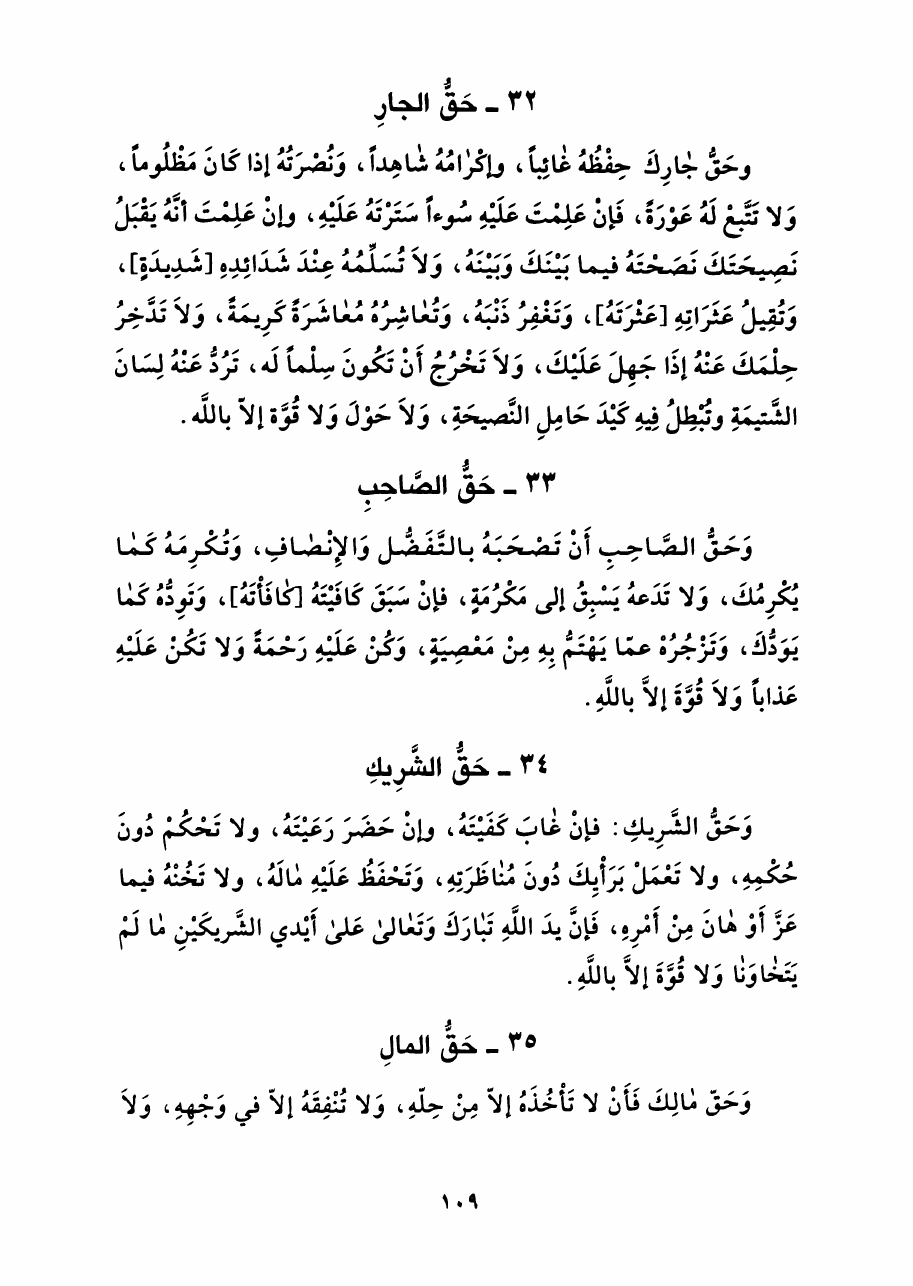 ٣٢ ـ حَقُّ الجارِ
وحَقُّ جٰارِكَ حِفْظُهُ غٰائِباً، وإِكْرٰامُهُ شٰاهِداً، وَنُصْرَتُهُ إذا كَانَ مَظْلُوماً،
وَلا تَتَّبِعْ لَهُ عَوْرَةً، فَإنْ عَلِمْتَ عَلَيْهِ سُوءاً سَتَرْتَهُ عَلَيْهِ، وإنْ عَلِمْتَ أنَّهُ يَقْبَلُ
نَصِيحَتَكَ نَصَحْتَهُ فيما بَيْنَكَ وَبَيْنَهُ، وَلاَ تُسَلِّمُهُ عِنْدَ شَدَائِدِهِ [شَدِيدَةٍ]،
وَتُقِيلُ عَثَرَاتِهِ [عَثْرَتَهُ]، وَتَغْفِرُ ذَنْبَهُ، وَتُعٰاشِرُهُ مُعٰاشَرَةً كَرِيمَةً، وَلاَ تَدَّخِرُ
حِلْمَكَ عَنْهُ إذَا جَهِلَ عَلَيْكَ، وَلاَ تَخْرُجُ أَنْ تَكُونَ سِلْماً لَه، تَرُدُّ عَنْهُ لِسَانَ
الشَّتيمَةِ وتُبْطِلُ فِيهِ كَيْدَ حَامِلِ النَّصيحَةِ، وَلاَ حَوْلَ وَلا قُوَّة إلاّ باللَّه.
٣٣ ـ حَقُّ الصَّاحِبِ
وَحَقُّ الصَّاحِبِ أَنْ تَصْحَبَهُ بالتَّفَضُّل وَالإنْصٰافِ، وَتُكْرِمَهُ كَمٰا
يُكْرِمُكَ، وَلا تَدَعهُ يَسْبِقُ إلى مَكْرُمَةٍ، فإنْ سَبَقَ كَافَيْتَهُ [كٰافَأْتَهُ]، وَتَوِدُّهُ كَمٰا
يَوَدُّكَ، وَتَزْجُرُهْ عمّا يَهْتَمُّ بِهِ مِنْ مَعْصِيَةٍ، وَكُنْ عَلَيْهِ رَحْمَةً وَلا تَكُنْ عَلَيْهِ
عَذاباً وَلاَ قُوَّةَ إلاَّ باللَّهِ.
٣٤ ـ حَقُّ الشَّرِيكِ
وَحَقُّ الشَّرِيكِ: فإنْ غٰابَ كَفَيْتَهُ، وإنْ حَضَرَ رَعَيْتَهُ، ولا تَحْكُمْ دُونَ
حُكْمِهِ، ولا تَعْمَلْ بَرَأْيِكَ دُونَ مُنٰاظَرَتِهِ، وَتَحْفَظُ عَلَيْهِ مٰالَهُ، ولا تَخُنْهُ فيما
عَزَّ أَوْ هٰانَ مِنْ أَمْرِهِ، فَإنَّ يدَ اللَّهِ تَبٰارَكَ وَتَعٰالىٰ عَلىٰ أَيْدي الشَّريكَيْنِ مٰا لَمْ
يَتَخٰاوَنٰا وَلا قُوَّةَ إلاَّ باللَّهِ.
٣٥ ـ حَقُّ المالِ
وَحَقّ مٰالِكَ فَأَنْ لا تَأْخُذَهُ إلاّ مِنْ حِلّهِ، وَلا تُنْفِقَهُ إلاّ في وَجْهِهِ، وَلاَ
١٠٩